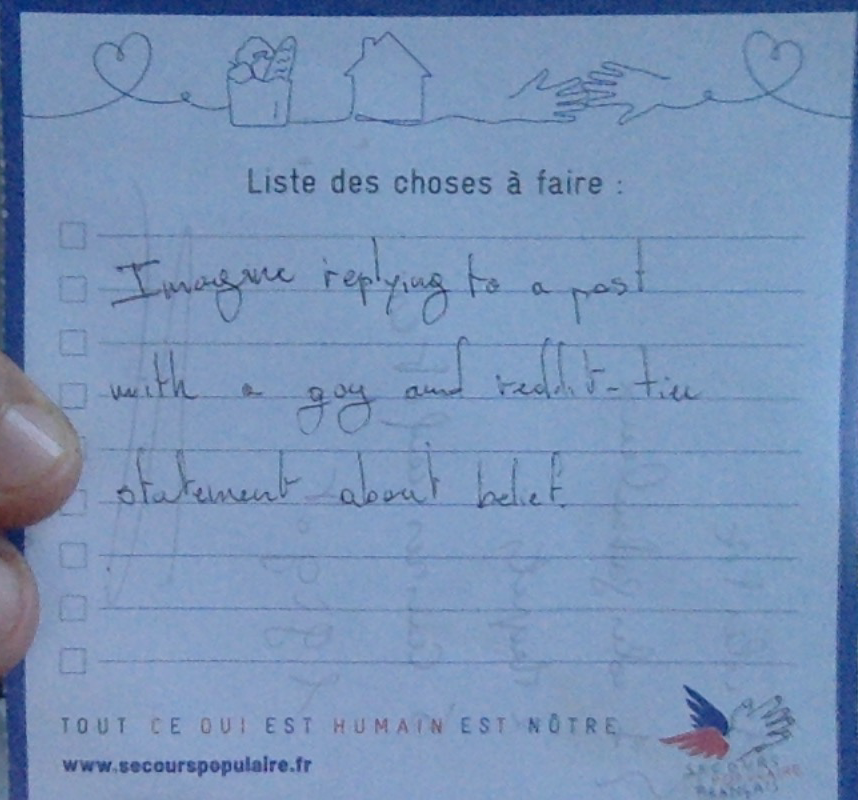 Liste des choses à faire :
Imagine replying to a post
with a gay and reddit-tier
statement about belief.
TOUT CE QUI EST HUMAIN EST NÔTRE
www.secourspopulaire.fr
SECOURS
POPULAIRE
FRANÇAIS